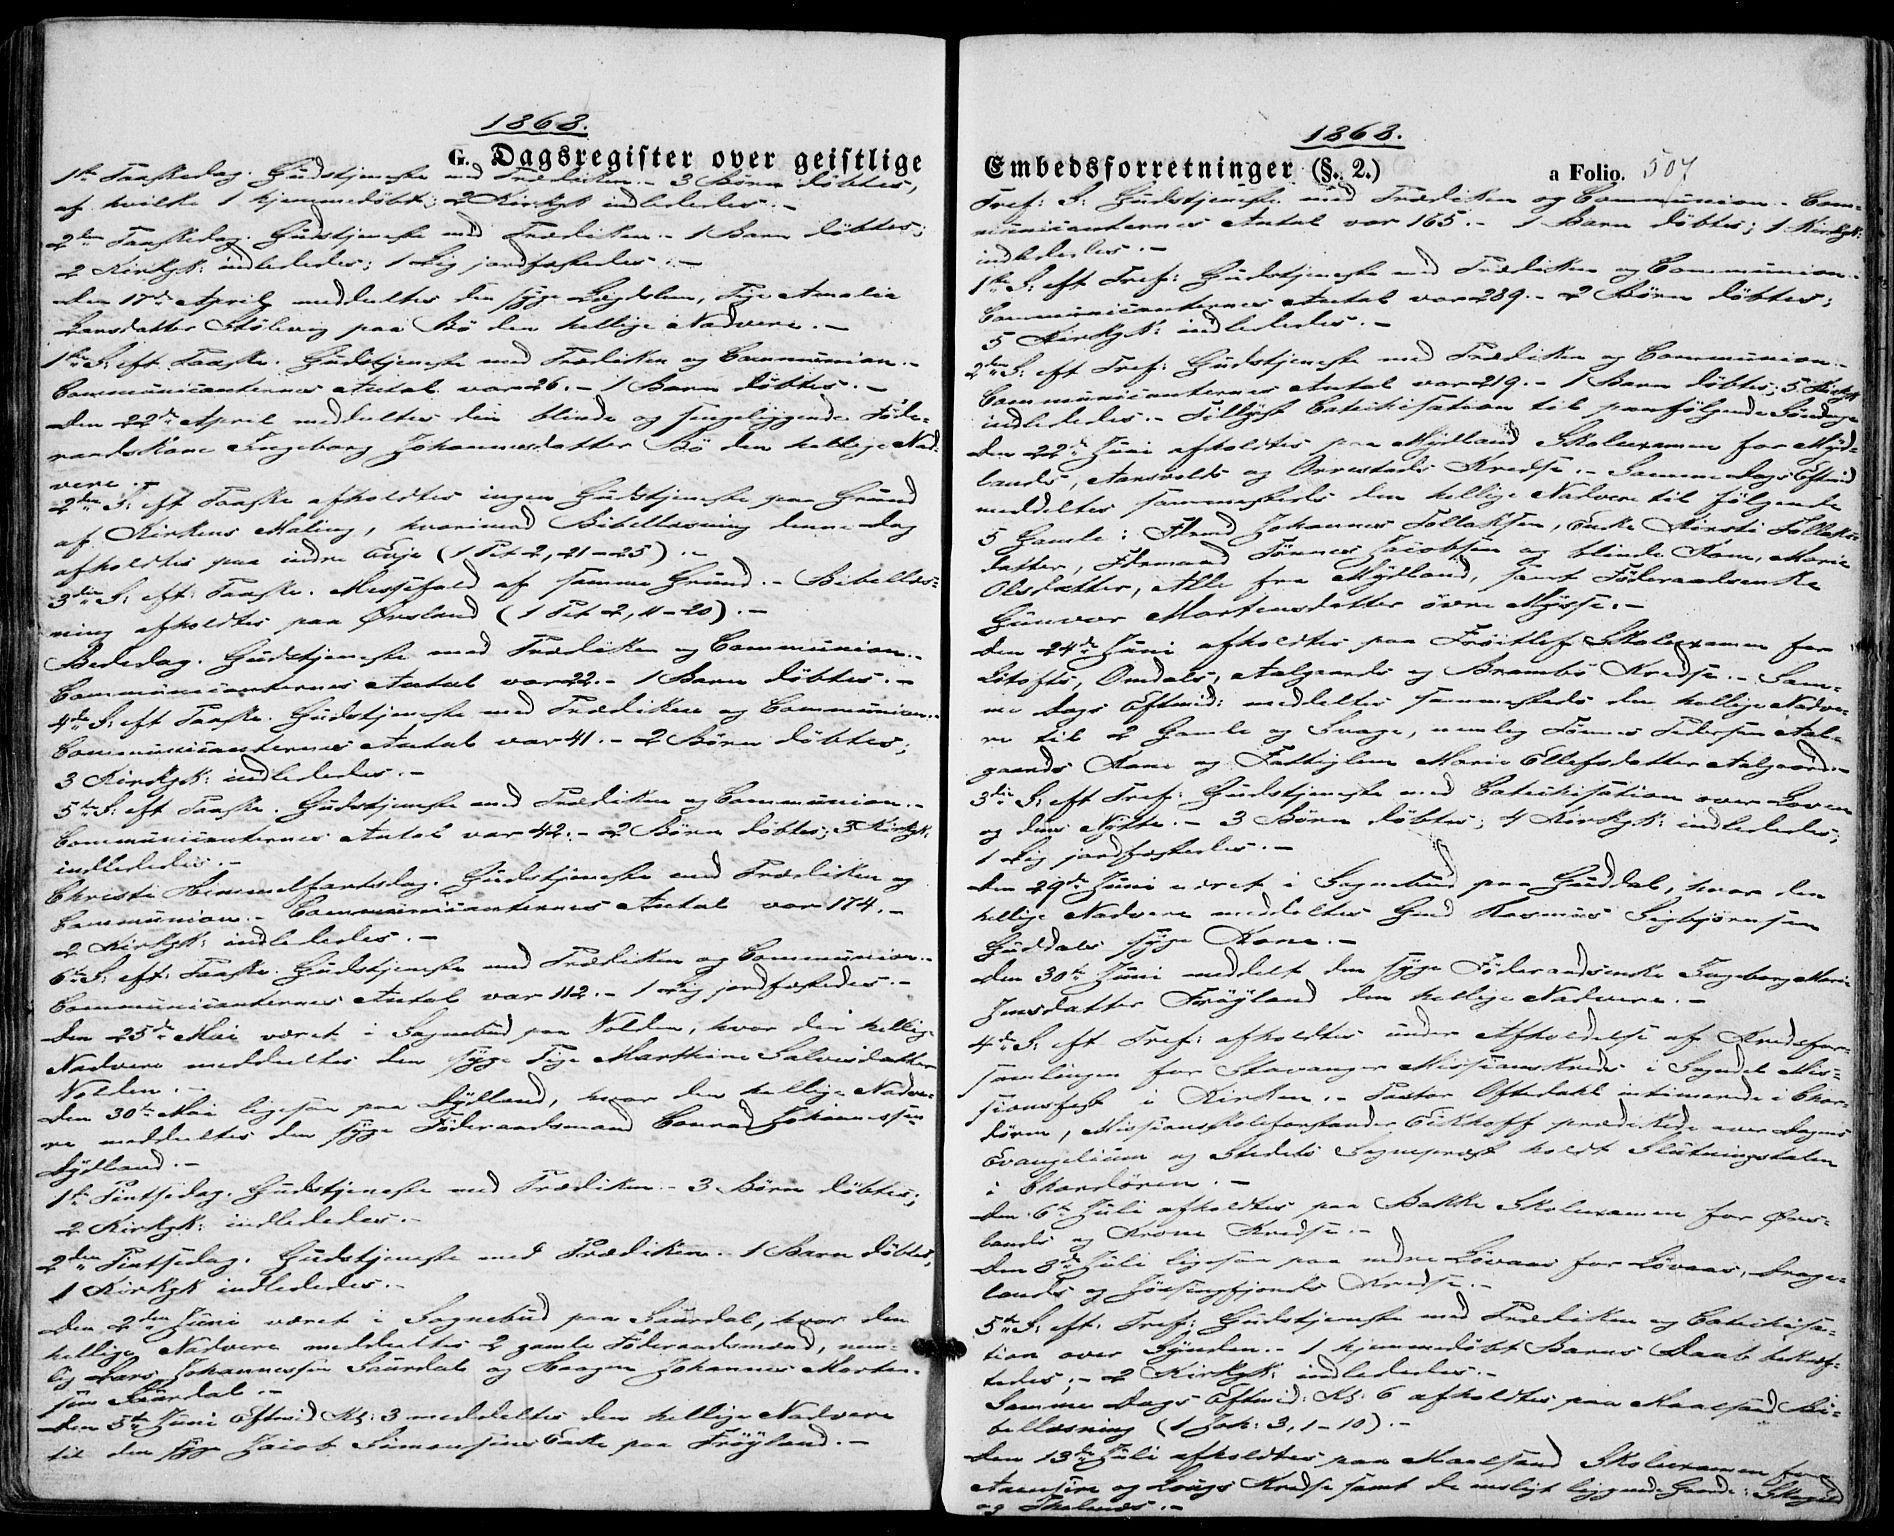 1868.
G. Dagsregister over geistlige
1ste Paaskedag. Gudstjeneste med Prædiken. - 3 Børn døbtes,
af hvilke 1 hjemmedøbt; 2 Kirkgk indlededes. -
2den Paaskedag. Gudstjeneste med Prædiken. - 1 Barn døbtes;
2 Kirkgk: indlededes; 1 Lig jordfæstedes. -
Den 17de April meddeeltes den syge Lægdslem, Pige Amalia
Larsdatter Stølevig paa Bø den hellige Nadvere. -
1ste S: eft Paaske. Gudstjeneste med Prædiken og Communion. -
Communicanternes Antal var 26. - 1 Barn døbtes. -
Den 22de April meddeeltes den blinde og sengeliggende Føde-
raadskone Ingeborg Johannesdatter Bø den hellige Nad-
vere. -
2den S: eft Paaske afholdtes ingen Gudstjeneste paa Grund
af Kirkens Maling, hvorimod Bibellæsning denne Dag
afholdtes paa indre Eeje (1 Pet 2, 21-25). -
3die S: eft: Paaske. Messefald af samme Grund. - Bibellæs-
ning afholdtes paa Ørsland (1 Pet 2, 11-20). -
Bededag. Gudstjeneste med Prædiken og Communion. -
Communicanternes Antal var 22. - 1 Barn døbtes. -
4de S: eft Paaske. Gudstjeneste med Prædiken og Communion. -
Communicanternes Antal var 41. - 2 Børn døbtes;
3 Kirkgk: indlededes. -
5te S: eft Paaske. Gudstjeneste med Prædiken og Communion. -
Communicanternes Antal var 42. - 2 Børn døbtes; 3 Kirkgk:
indlededes. -
Christi Himmelfartsdag. Gudstjeneste med Prædiken og
Communion. - Communicanternes Antal var 174. -
2 Kirkgk: indlededes. -
6te S: eft: Paaske. Gudstjeneste med Prædiken og Communion. -
Communicanternes Antal var 112. - 1 Lig jordfæstedes. -
Den 25de Mai været i Sognebud paa Nolden, hvor den hellige
Nadvere meddeeltes den syge Pige Marthine Salvesdatter
Nolden. -
Den 30te Mai ligesaa paa Dydland, hvor den hellige Nadve-
re meddeeltes den syge Føderaadsmand Conrad Johannessen
Dydland. -
1ste Pintsedag. Gudstjeneste med Prædiken - 3 Børn døbtes;
2 Kirkgk: indlededes. -
2den Pintsedag. Gudstjeneste med Prædiken. 1 Barn døbtes,
1 Kirkgk indlededes. -
Den 2den Juni været i Sognebud paa Suurdal, hvor den
hellige Nadvere meddeeltes 2 gamle Føderaadsmænd, nem-
lig Lars Johannessen Suurdal og Haagen Johannes Morten-
sen Suurdal. -
Den 5te Juni Eftmid Kl: 3 meddeeltes den hellige Nadvere
til den syge Jacob Simonsens Enke paa Frøyland. -
1868.
Embedsforretninger (§. 2.) a Folio. 507
Tref: S: Gudstjeneste med Prædiken og Communion. - Com-
municanternes Antal var 165. - 1 Barn døbtes; 1 Kirkgk:
indlededes. -
1ste S: eft Tref: Gudstjeneste med Prædiken og Communion. -
Communicanternes Antal var 289. - 2 Børn døbtes;
5 Kirkgk: indlededes. -
2den S: eft Tref: Gudstjeneste med Prædiken og Communion. -
Communicanternes Antal var 219. - 1 Barn døbtes; 5 Kirkgk
indlededes. - Tillyst Catechisation til paafølgende Søndage
Den 22de Juni afholdtes paa Mydland Skoleexamen for Myd-
lands, Aarsvolds og Orrestads Kredse. - Samme Dags Eftmid
meddeltes sammesteds den hellige Nadvere til følgende
5 Gamle: Flmd Johannes Tollaksen, Enke Kirsti Tollaks-
datter, Flmand Tønnes Jacobsen og blinde Kone, Marie
Olsdatter, Alle fra Mydland, samt Føderaadsenke
Gunvor Mortensdatter øvre Mysse. -
Den 24de Juni afholdtes paa Frøitlef Skoleexamen for
Østofts, Omdals, Aalgaards og Brambø Kredse. - Sam-
me Dags Eftmid: meddeltes sammesteds den hellige Nadve-
re til 2 Gamle og Svage, nemlig Tønnes Pedersen Aal-
gaards Kone og Fattiglem Marie Ellefsdatter Aalgaard. -
3die S: eft Tref: Gudstjeneste med Catechisation over Loven
og dens Nytte. - 3 Børn døbtes; 4 Kirkgk: indlededes;
1 Lig jordfæstedes. -
Den 29de Juni været i Sognebud paa Guddal, hvor den
hellige Nadvere meddeltes Gmd Rasmus Sigbjørnsen
Guddals syge Kone. -
Den 30te Juni meddelt den syge Føderaadsenke Ingeborg Marie
Jensdatter Frøyland den hellige Nadvere. -
4de S: eft Tref: afholdtes under Afholdelse af Kredsfor-
samlingen for Stavanger Missionskreds i Sognedal Mis-
sionsfest i Kirken. - Pastor Oftedahl intimerede i Chor-
døren, Missionsskoleforstander Eckhoff prædikede over Dagens
Evangelium og Stedets Sognepræst holdt Slutningstalen
i Chordøren. -
Den 6te Juli afholdtes paa Bakke Skoleexamen for Ørs-
lands og Krone Kredse. -
Den 8de Juli ligesaa paa nedre Løvaas for Løvaas, Drage-
lands og Jøssingfjords Kredse. -
5te S: eft: Tref: Gudstjeneste med Prædiken og Catechisa-
tion over Synden. - 1 hjemmedøbt Barns Daab bekræf-
tedes; - 2 Kirkgk: indlededes. -
Samme Dags Eftmid: Kl: 6 afholdtes paa Maalsund Bi-
bellæsning (1 Joh: 3, 1-10). -
Den 13de Juli afholdtes paa Maalsund Skoleexamen for
Aanesire og Lougs Kredse samt de enslight liggende Gaarde: Skogstad
og Skolnæs. -